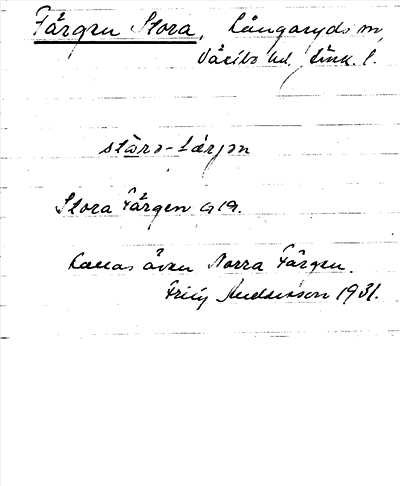 Färgen Stora, Långaryds sn,
Västbo hd. Jönk. l.
stora-färjən
Stora Färgen
Kallas även Norra Färgen.
Andersson 1931.